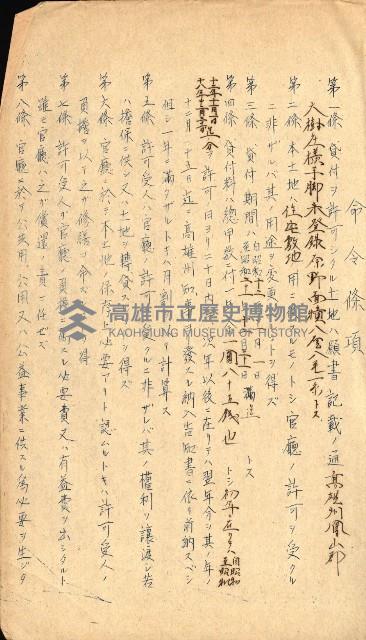 命令條項
第一條 貸付ヲ許可シタル土地ハ願書記載ノ通高雄州鳳山郡
大樹庄樣手腳未登錄原野面積八厘八毛一糸トス
第二條 本土地ハ住宅敷地ノ用ニ供スルモノトシ官廳ノ許可ヲ受クル
ニ非ザレバ其ノ用途ヲ変更スルコトヲ得ズ
第三條 貸付期間ハ 自昭和十二年 月一日 至昭和 年 月 日 滿 トス
第四條 貸付料ハ總甲数ニ付一年 一圓八十五錢也 トシ初年度ハ
分ヲ許可ノ日ヨリ二十日内 次年以後ニ在リテハ翌年分ヲ其ノ年ノ
十二月二十五日迄ニ高雄州知事ノ發スル納入告知書ニ依リ前納スベシ
但シ一年ニ滿タザルトキハ月割ヲ以テ計算ス
第五條 許可受人ハ官廳ノ許可ヲ受クルニ非ザレバ其ノ權利ヲ讓渡シ若
ハ擔保ニ供シ又ハ土地ヲ轉貸スルコトヲ得ズ
第六條 官廳ニ於テ本土地ノ保存上必要アリト認ムルトキハ許可受人ノ
負擔ヲ以テ之ガ修繕ヲ命ズルコトヲ得
第七條 許可受人ガ官廳ノ 必要費又ハ有益費ヲ出シタルト
雖モ官廳ハ之ガ償還ノ責ニ任ゼズ
第八條 官廳ニ於テ公共用、公用又ハ公益事業ニ供スル為必要ヲ生ジタ
高雄市立歷史博物館
KAOHSIUNG MUSEUM OF HISTORY